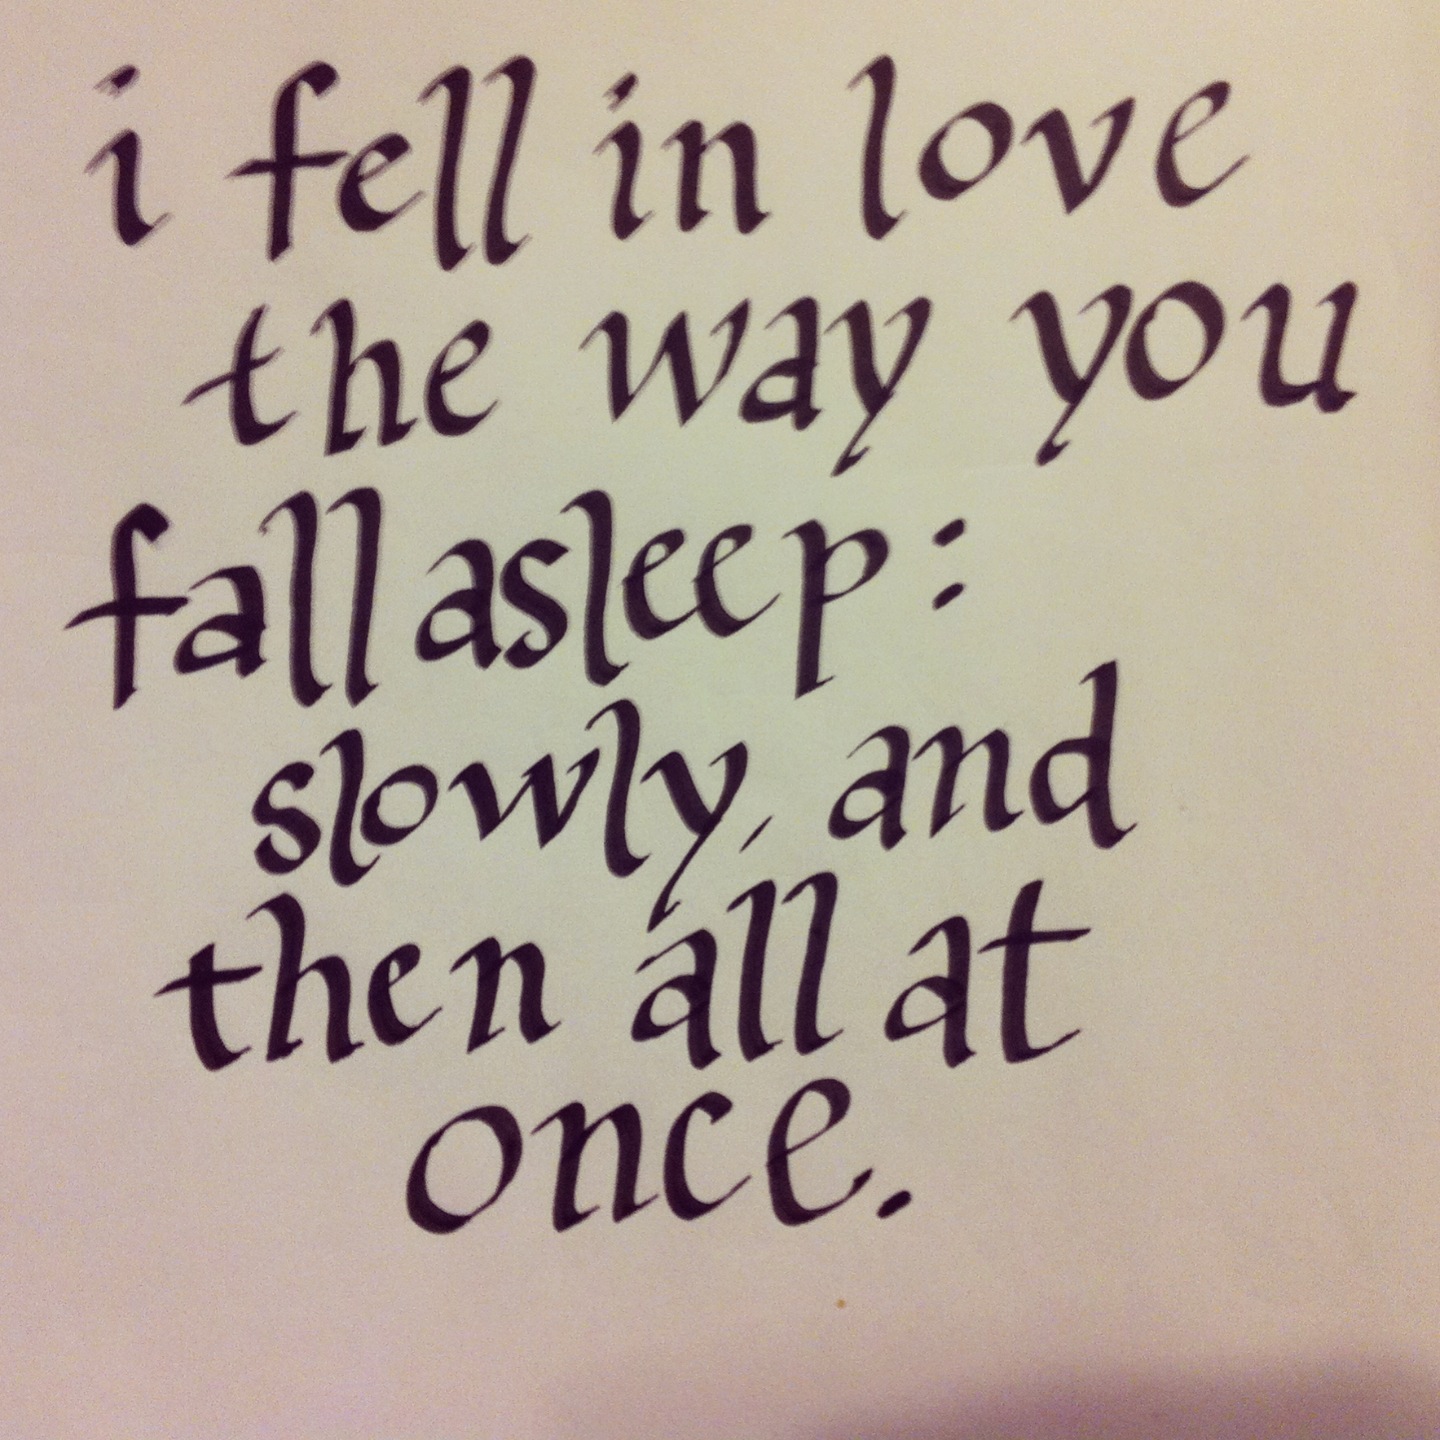 i fell in love
the way you
fall asleep:
slowly, and
then all at
once.